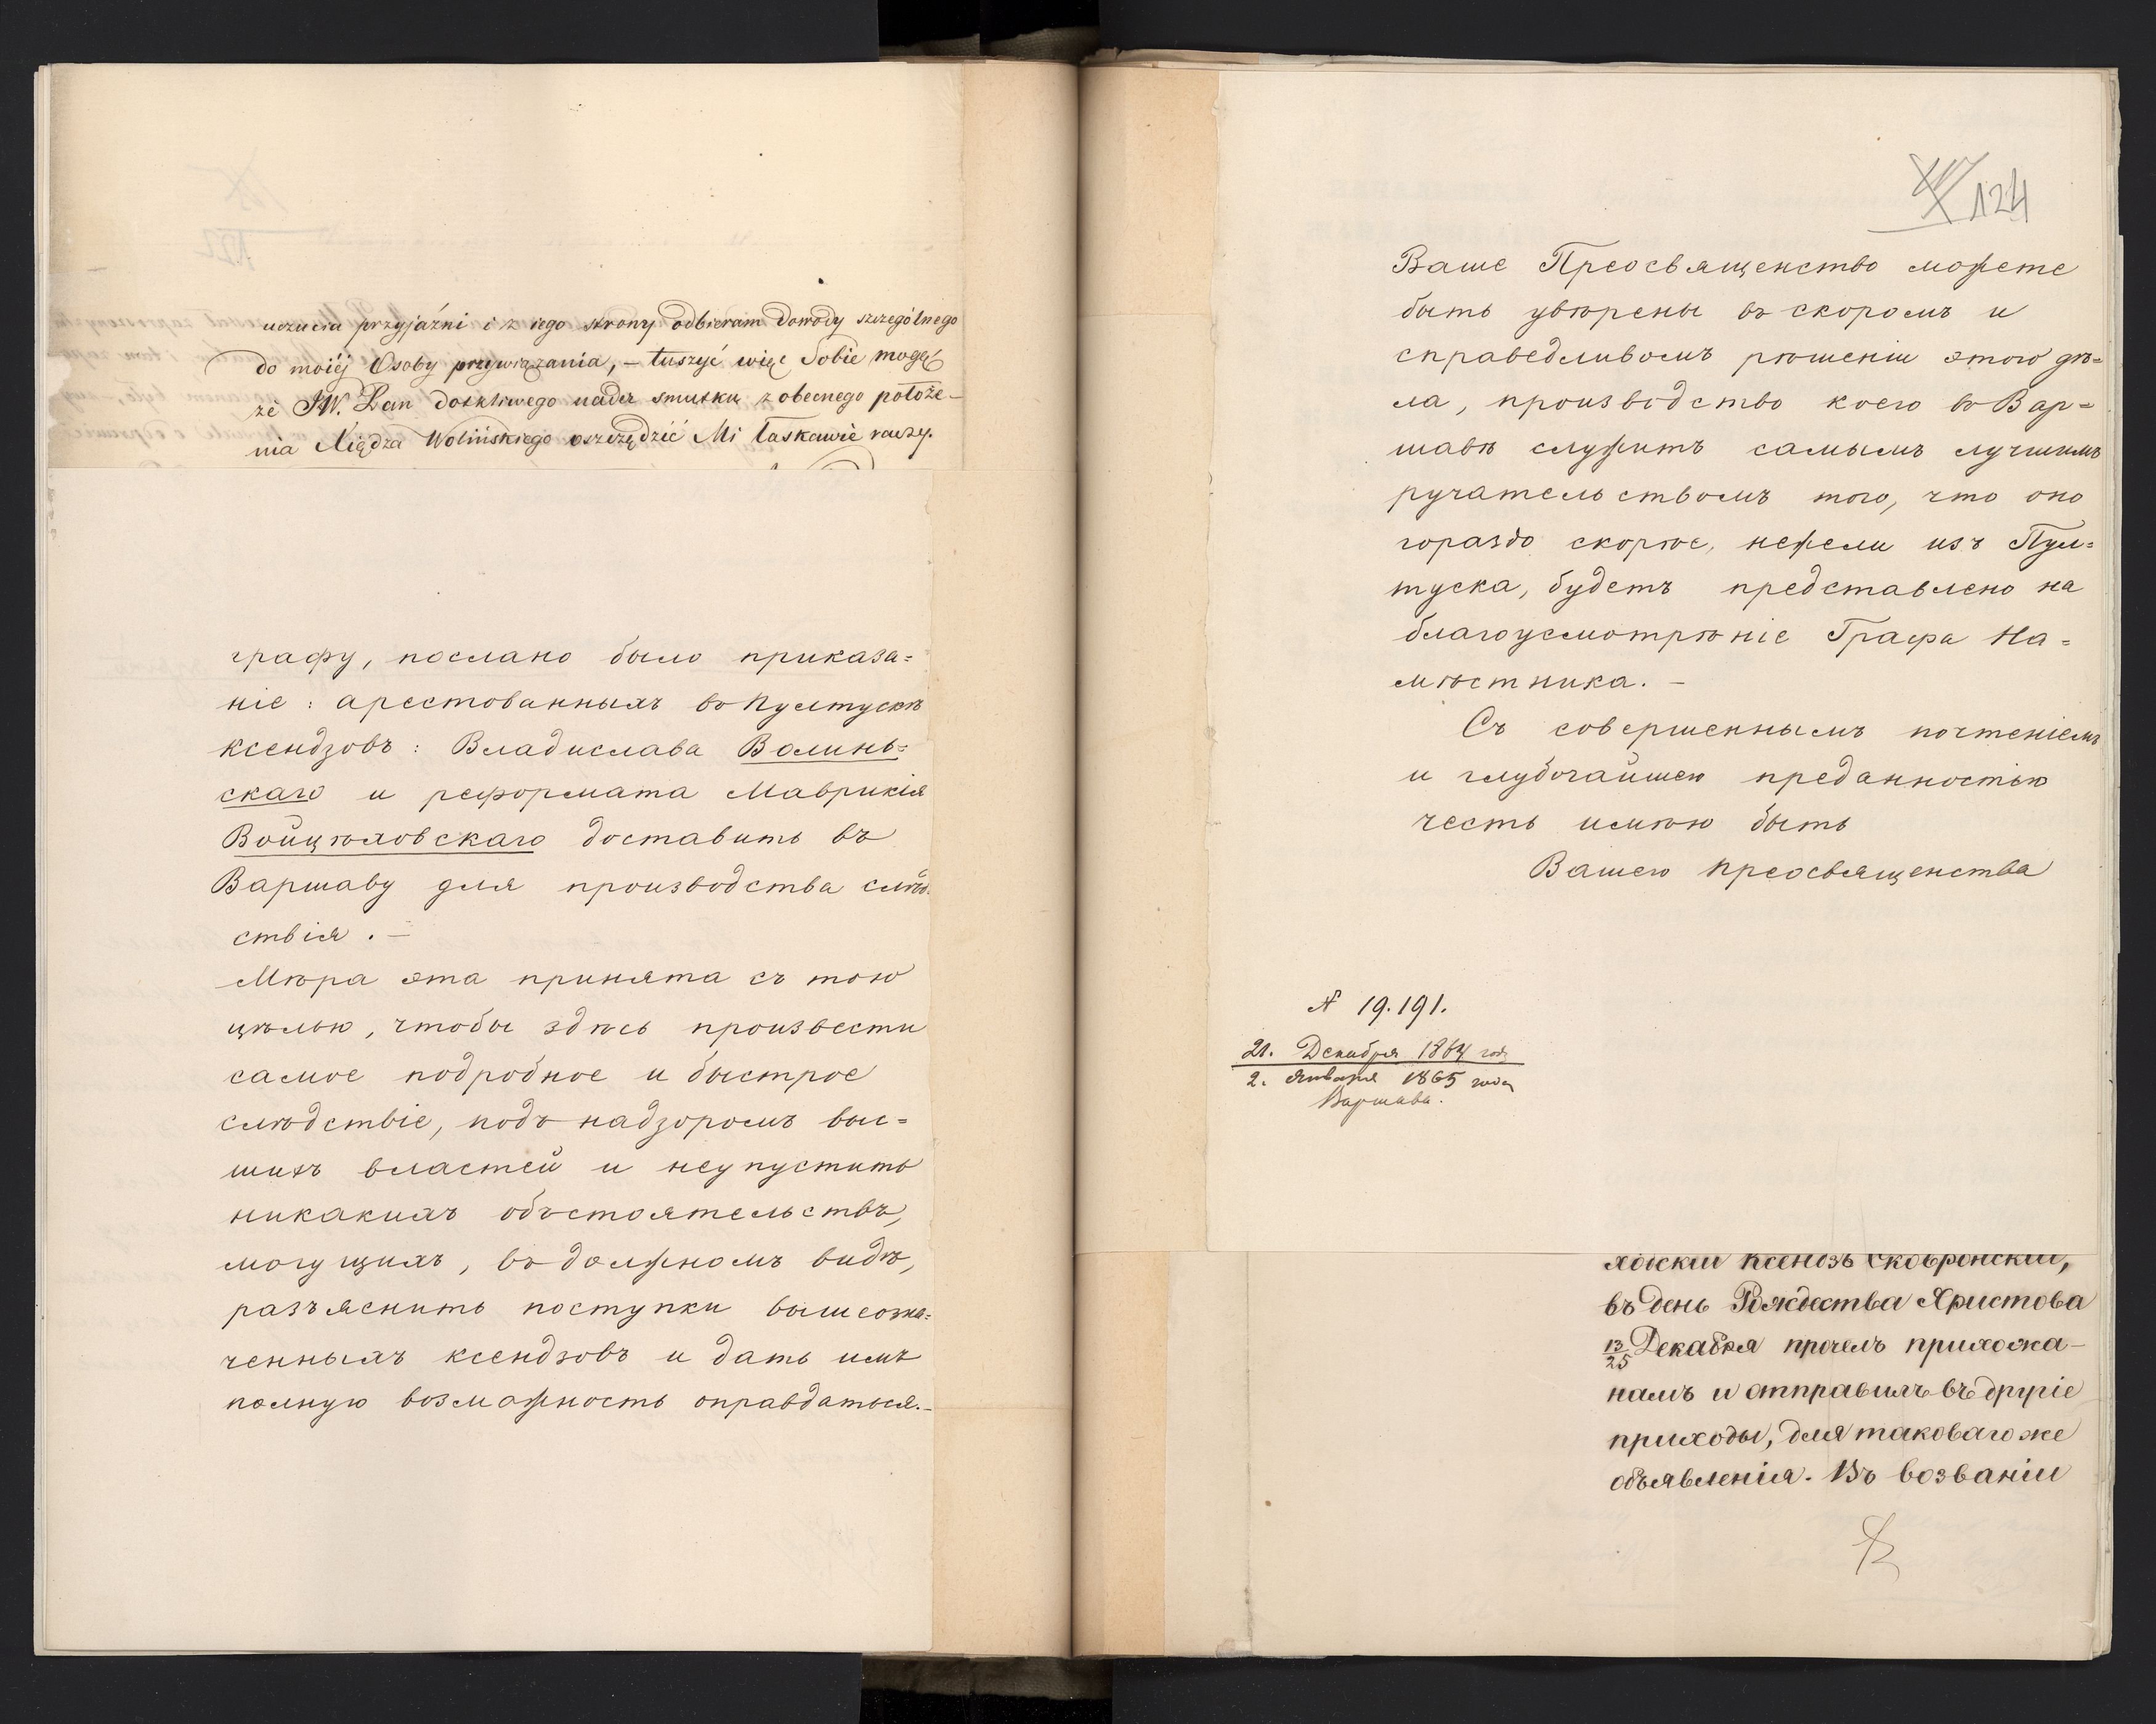 uczucia przyjaźni i z jego strony odbieram dowody szczególnego
do moiéj Osoby przywiązania, – tuszyć więc Sobie mogę
że JW. Pan dotkliwego nader smutku z obecnego położe-
nia Xiędza Wolińskiego oszczędzić Mi łaskawie raczy.
графу, послано было приказа=
ніе: арестованныхъ въ Пултускѣ
ксендзовъ: Владислава Волинь=
скаго и реформата Маврикія
Войцѣховскаго доставить въ
Варшаву для производства слѣд-
ствія. –
Мѣра эта принята съ тою
цѣлью, чтобы здѣсь произвести
самое подробное и быстрое
слѣдствіе, подъ надзоромъ выс=
шихъ властей и неупустить
никакихъ обстоятельствъ,
могущихъ, въ должномъ видѣ,
разъяснить поступки вышеозна=
ченныхъ ксендзовъ и дать имъ
полную возможность оправдаться. –
124
Ваше Преосвященство можете
быть увѣрены въ скоромъ и
справедливомъ рѣшеніи этого дѣ=
ла, производство коего въ Вар=
шавѣ служитъ самымъ лучшимъ
ручательствомъ того, что оно
гораздо скорѣе, нежели изъ Пул=
туска, будетъ представлено на
благоусмотрѣніе Графа На=
мѣстника. –
Съ совершеннымъ почтеніемъ
и глубочайшею преданностію
честь имѣю быть
Вашего Преосвященства
№ 19.191.
21. Декабря 1864 года
2. Января 1865 года
Варшава.
ксендзъ Сковронскій,
въ день Рождества Христова
13/25 Декабря прочелъ прихожа-
намъ и отправилъ въ другіе
приходы, для таковаго же
объявленія. Въ воззваніи